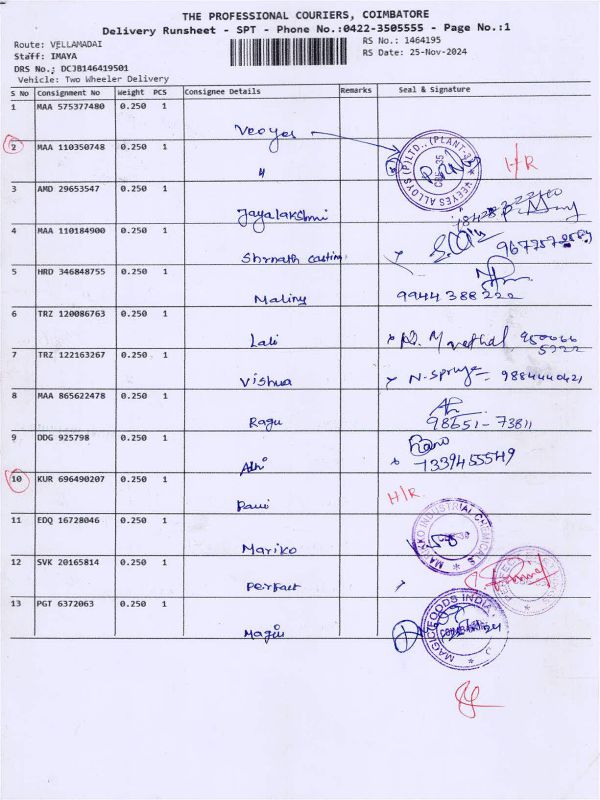 THE PROFESSIONAL COURIERS, COIMBATORE
Delivery Runsheet - SPT - Phone No.:0422-3505555 - Page No.:1
Route: VELLAMADAI
RS No.: 1464195
Staff: IMAYA
RS Date: 25-Nov-2024
DRS No.: DCJB146419501
Vehicle: Two Wheeler Delivery
S No Consignment No Weight PCS Consignee Details Remarks Seal & Signature
1 MAA 575377480 0.250 1
Veeyes
2 MAA 110350748 0.250 1
VEEYES ALLOYS (P)LTD., (PLANT-3)
H/R
"
3 AMD 29653547 0.250 1
Jayalakshmi
4 MAA 110184900 0.250 1
Shrinath casting
5 HRD 346848755 0.250 1
Maliny 9944388222
6 TRZ 120086763 0.250 1
Lali
7 TRZ 122163267 0.250 1
Vishua 9884440421
8 MAA 865622478 0.250 1
Ragu 98651-73811
9 DDG 925798 0.250 1
Adhi 7339455549
10 KUR 696490207 0.250 1
H/R
Rani
11 EDQ 16728046 0.250 1
INDUSTRIAL CHEMICALS
Mariko
12 SVK 20165814 0.250 1
Perfact
13 PGT 6372063 0.250 1
MAGIC FOODS INDIA
Magic